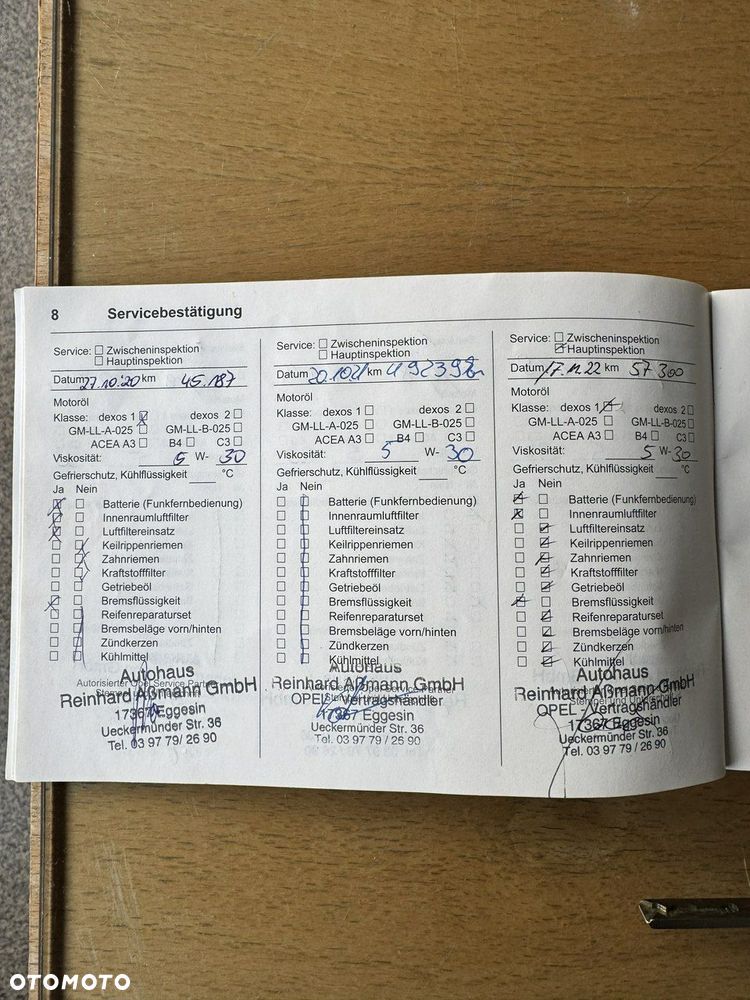 8 Servicebestätigung
Service: Zwischeninspektion
Hauptinspektion
Datum 27.10.20 km 45.187
Motoröl
Klasse: dexos 1 dexos 2
GM-LL-A-025 GM-LL-B-025
ACEA A3 B4 C3
Viskosität: 5 W- 30
Gefrierschutz, Kühlflüssigkeit °C
Ja Nein
Batterie (Funkfernbedienung)
Innenraumluftfilter
Luftfiltereinsatz
Keilrippenriemen
Zahnriemen
Kraftstofffilter
Getriebeöl
Bremsflüssigkeit
Reifenreparaturset
Bremsbeläge vorn/hinten
Zündkerzen
Kühlmittel
Autorisierter Opel Service Partner
Autohaus
Reinhard Aßmann GmbH
17367 Eggesin
Ueckermünder Str. 36
Tel. 03 97 79 / 26 90
Service: Zwischeninspektion
Hauptinspektion
Datum 20.10.21 km
Motoröl
Klasse: dexos 1 dexos 2
GM-LL-A-025 GM-LL-B-025
ACEA A3 B4 C3
Viskosität: 5 W- 30
Gefrierschutz, Kühlflüssigkeit °C
Ja Nein
Batterie (Funkfernbedienung)
Innenraumluftfilter
Luftfiltereinsatz
Keilrippenriemen
Zahnriemen
Kraftstofffilter
Getriebeöl
Bremsflüssigkeit
Reifenreparaturset
Bremsbeläge vorn/hinten
Zündkerzen
Kühlmittel
Autohaus
Reinhard Aßmann GmbH
OPEL - Vertragshändler
17367 Eggesin
Ueckermünder Str. 36
Tel. 03 97 79 / 26 90
Service: Zwischeninspektion
Hauptinspektion
Datum 17.11.22 km 57300
Motoröl
Klasse: dexos 1 dexos 2
GM-LL-A-025 GM-LL-B-025
ACEA A3 B4 C3
Viskosität: 5 W- 30
Gefrierschutz, Kühlflüssigkeit °C
Ja Nein
Batterie (Funkfernbedienung)
Innenraumluftfilter
Luftfiltereinsatz
Keilrippenriemen
Zahnriemen
Kraftstofffilter
Getriebeöl
Bremsflüssigkeit
Reifenreparaturset
Bremsbeläge vorn/hinten
Zündkerzen
Kühlmittel
Autohaus
Reinhard Aßmann GmbH
OPEL - Vertragshändler
17367 Eggesin
Ueckermünder Str. 36
Tel. 03 97 79 / 26 90
OTOMOTO